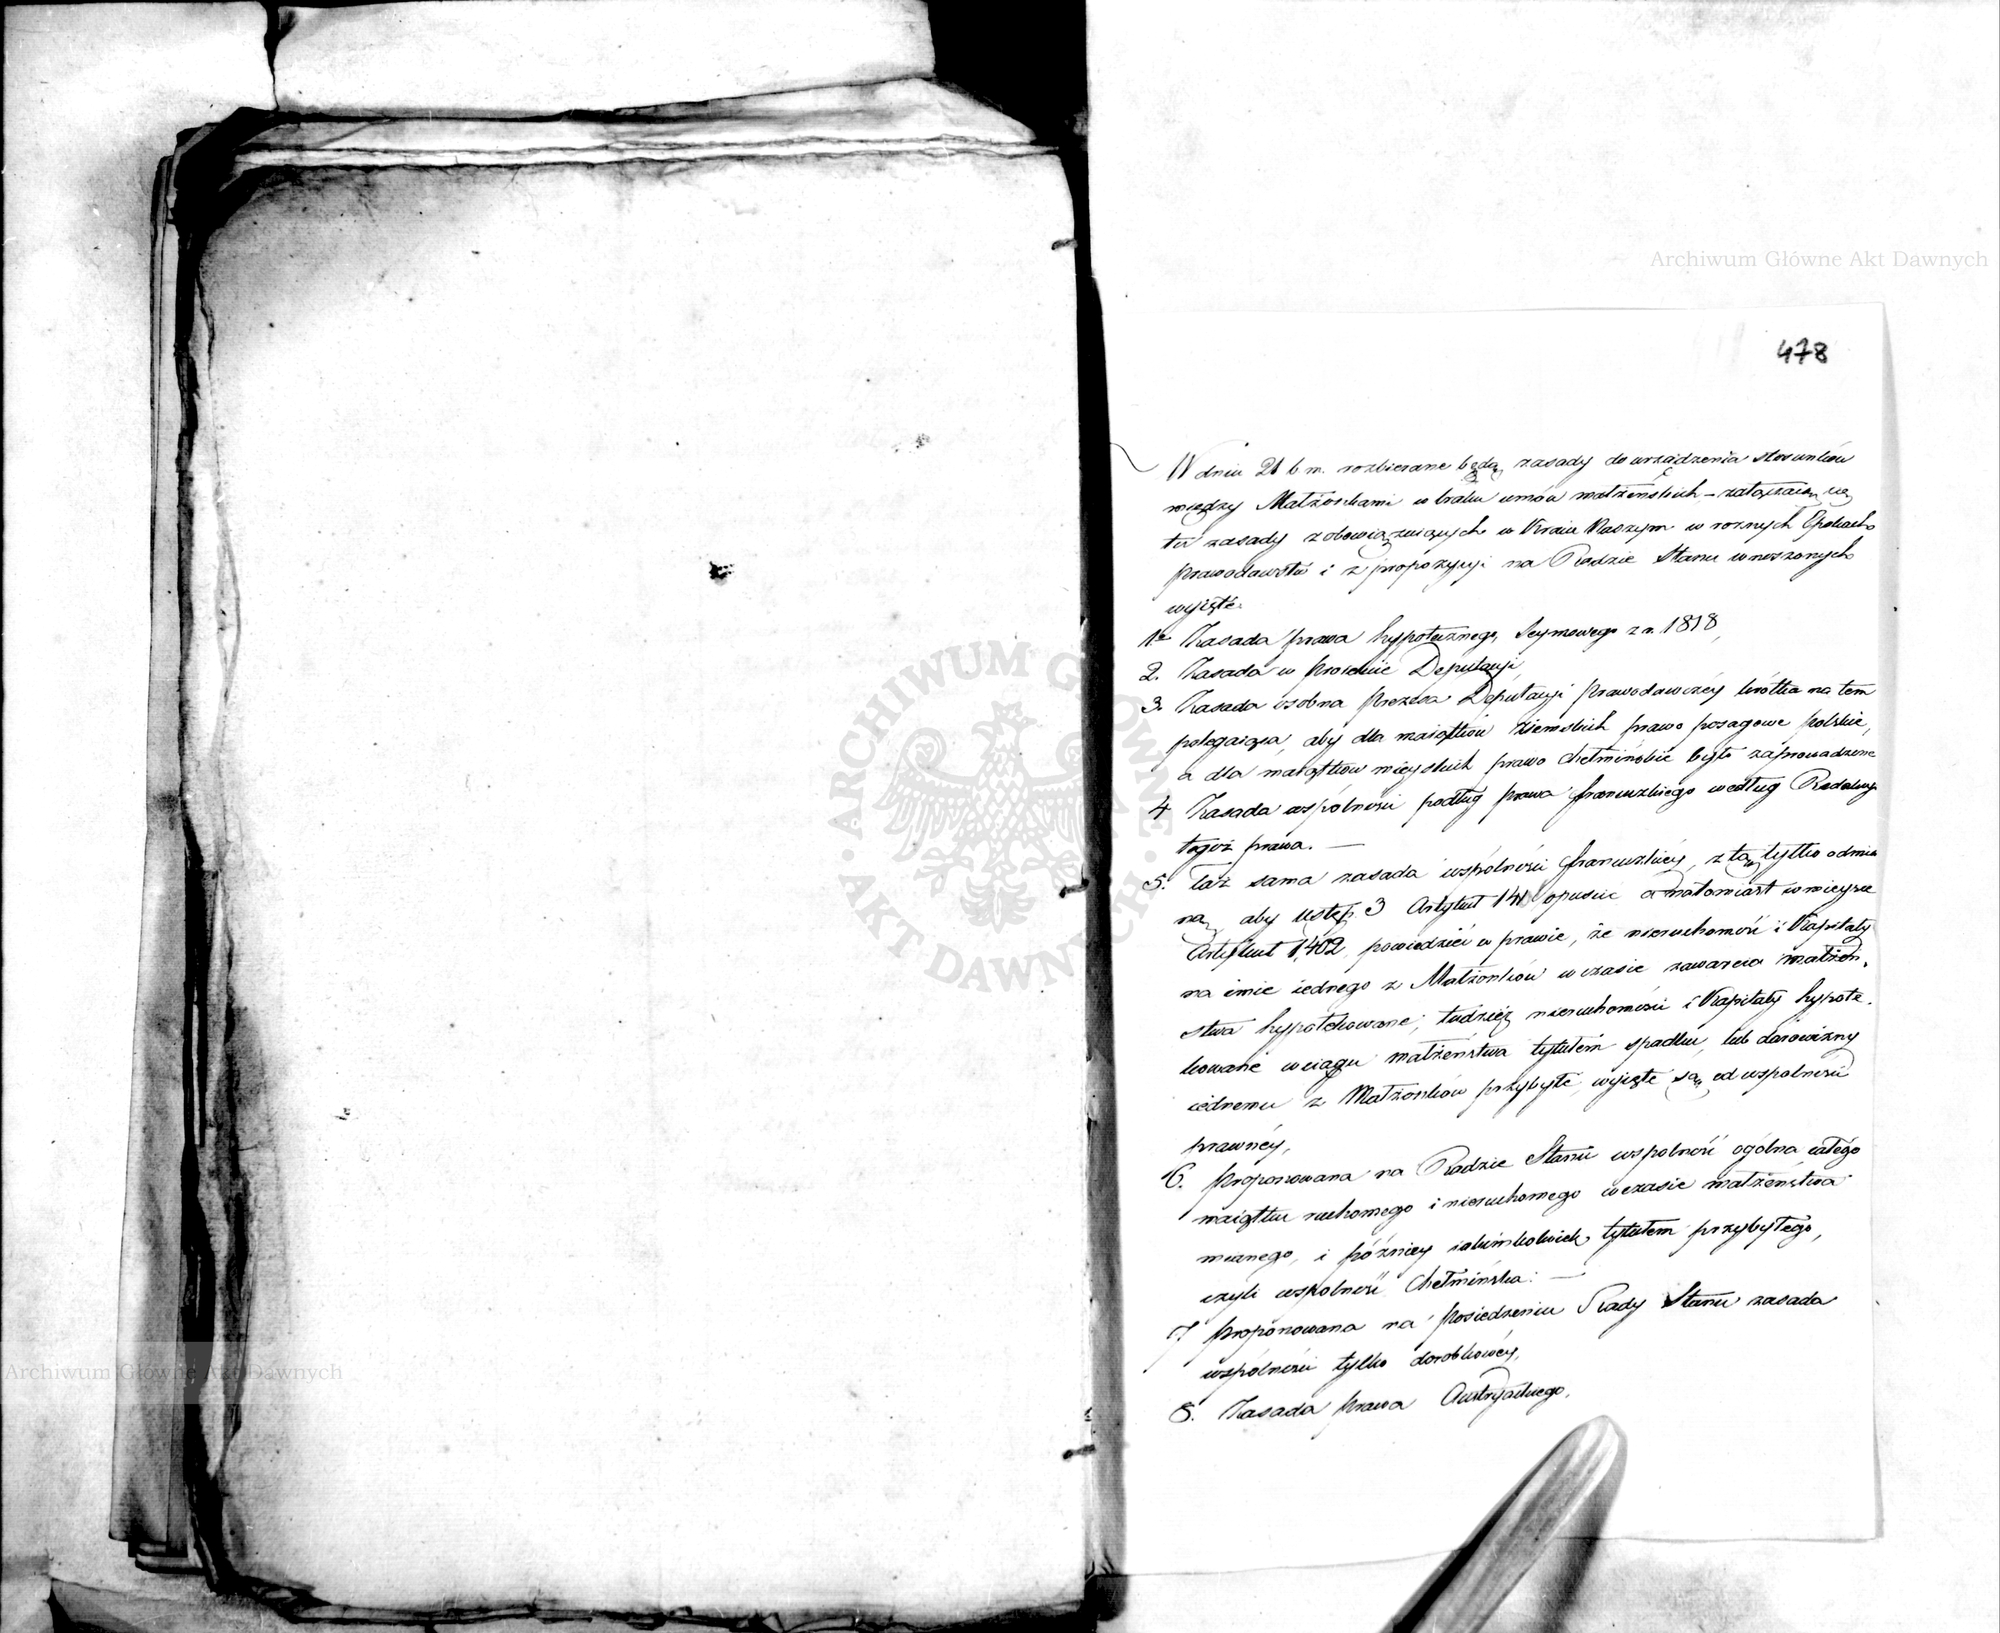 Archiwum Główne Akt Dawnych
478
W dniu 21 b m. rozbierane będą zasady do urządzenia stosunków
między Małżonkami w braku umów małżeńskich – załączaią się
tu zasady z obowiązuiących w Kraiu Naszym w roznych Epokach
prawodawstw i z propozycyi na Radzie Stanu wnoszonych
wyięte.
1e Zasada prawa hypotecznego Seymowego z r. 1818,
2. Zasada w Proiekcie Deputacyi,
3. Zasada osobna Prezesa Deputacyi Prawodawczéy krótka na tem
polegaiąca, aby dla maiątków ziemskich prawo posagowe polskie,
a dla maiątków mieyskich prawo Chełmińskie było zaprowadzone
4 Zasada wspólności podług prawa francuzkiego według Redakcyi
tegoż prawa. —
5. Taż sama zasada wspólności francuzkiéy, z tą tylko odmia
ną aby ustęp 3 Artykuł opuścić a natomiast w mieysce
Artykuł 1,402 powiedzieć w prawie, że nieruchomość i Kapitały
na imie iednego z Małżonków w czasie zawarcia małżeń,
stwa hypotekowane, tudzież nieruchomości i Kapitały hypote,
kowane w ciągu małżeństwa tytułem spadku, lub darowizny
iednemu z Małżonków przybyłe, wyięte są od wspolności
prawnéy,
6. Proponowana na Radzie Stanu wspolność ogólna całego
maiątku ruchomego i nieruchomego w czasie małżeństwa
mianego, i późniey iakimkolwiek tytułem przybyłego,
czyli wspolność Chełmińska. —
7. Proponowana na Posiedzeniu Rady Stanu zasada
wspólności tylko dorobkowéy,
8. Zasada Prawa Austryackiego.
ARCHIWUM GŁÓWNE · AKT DAWNYCH ·
Archiwum Główne Akt Dawnych